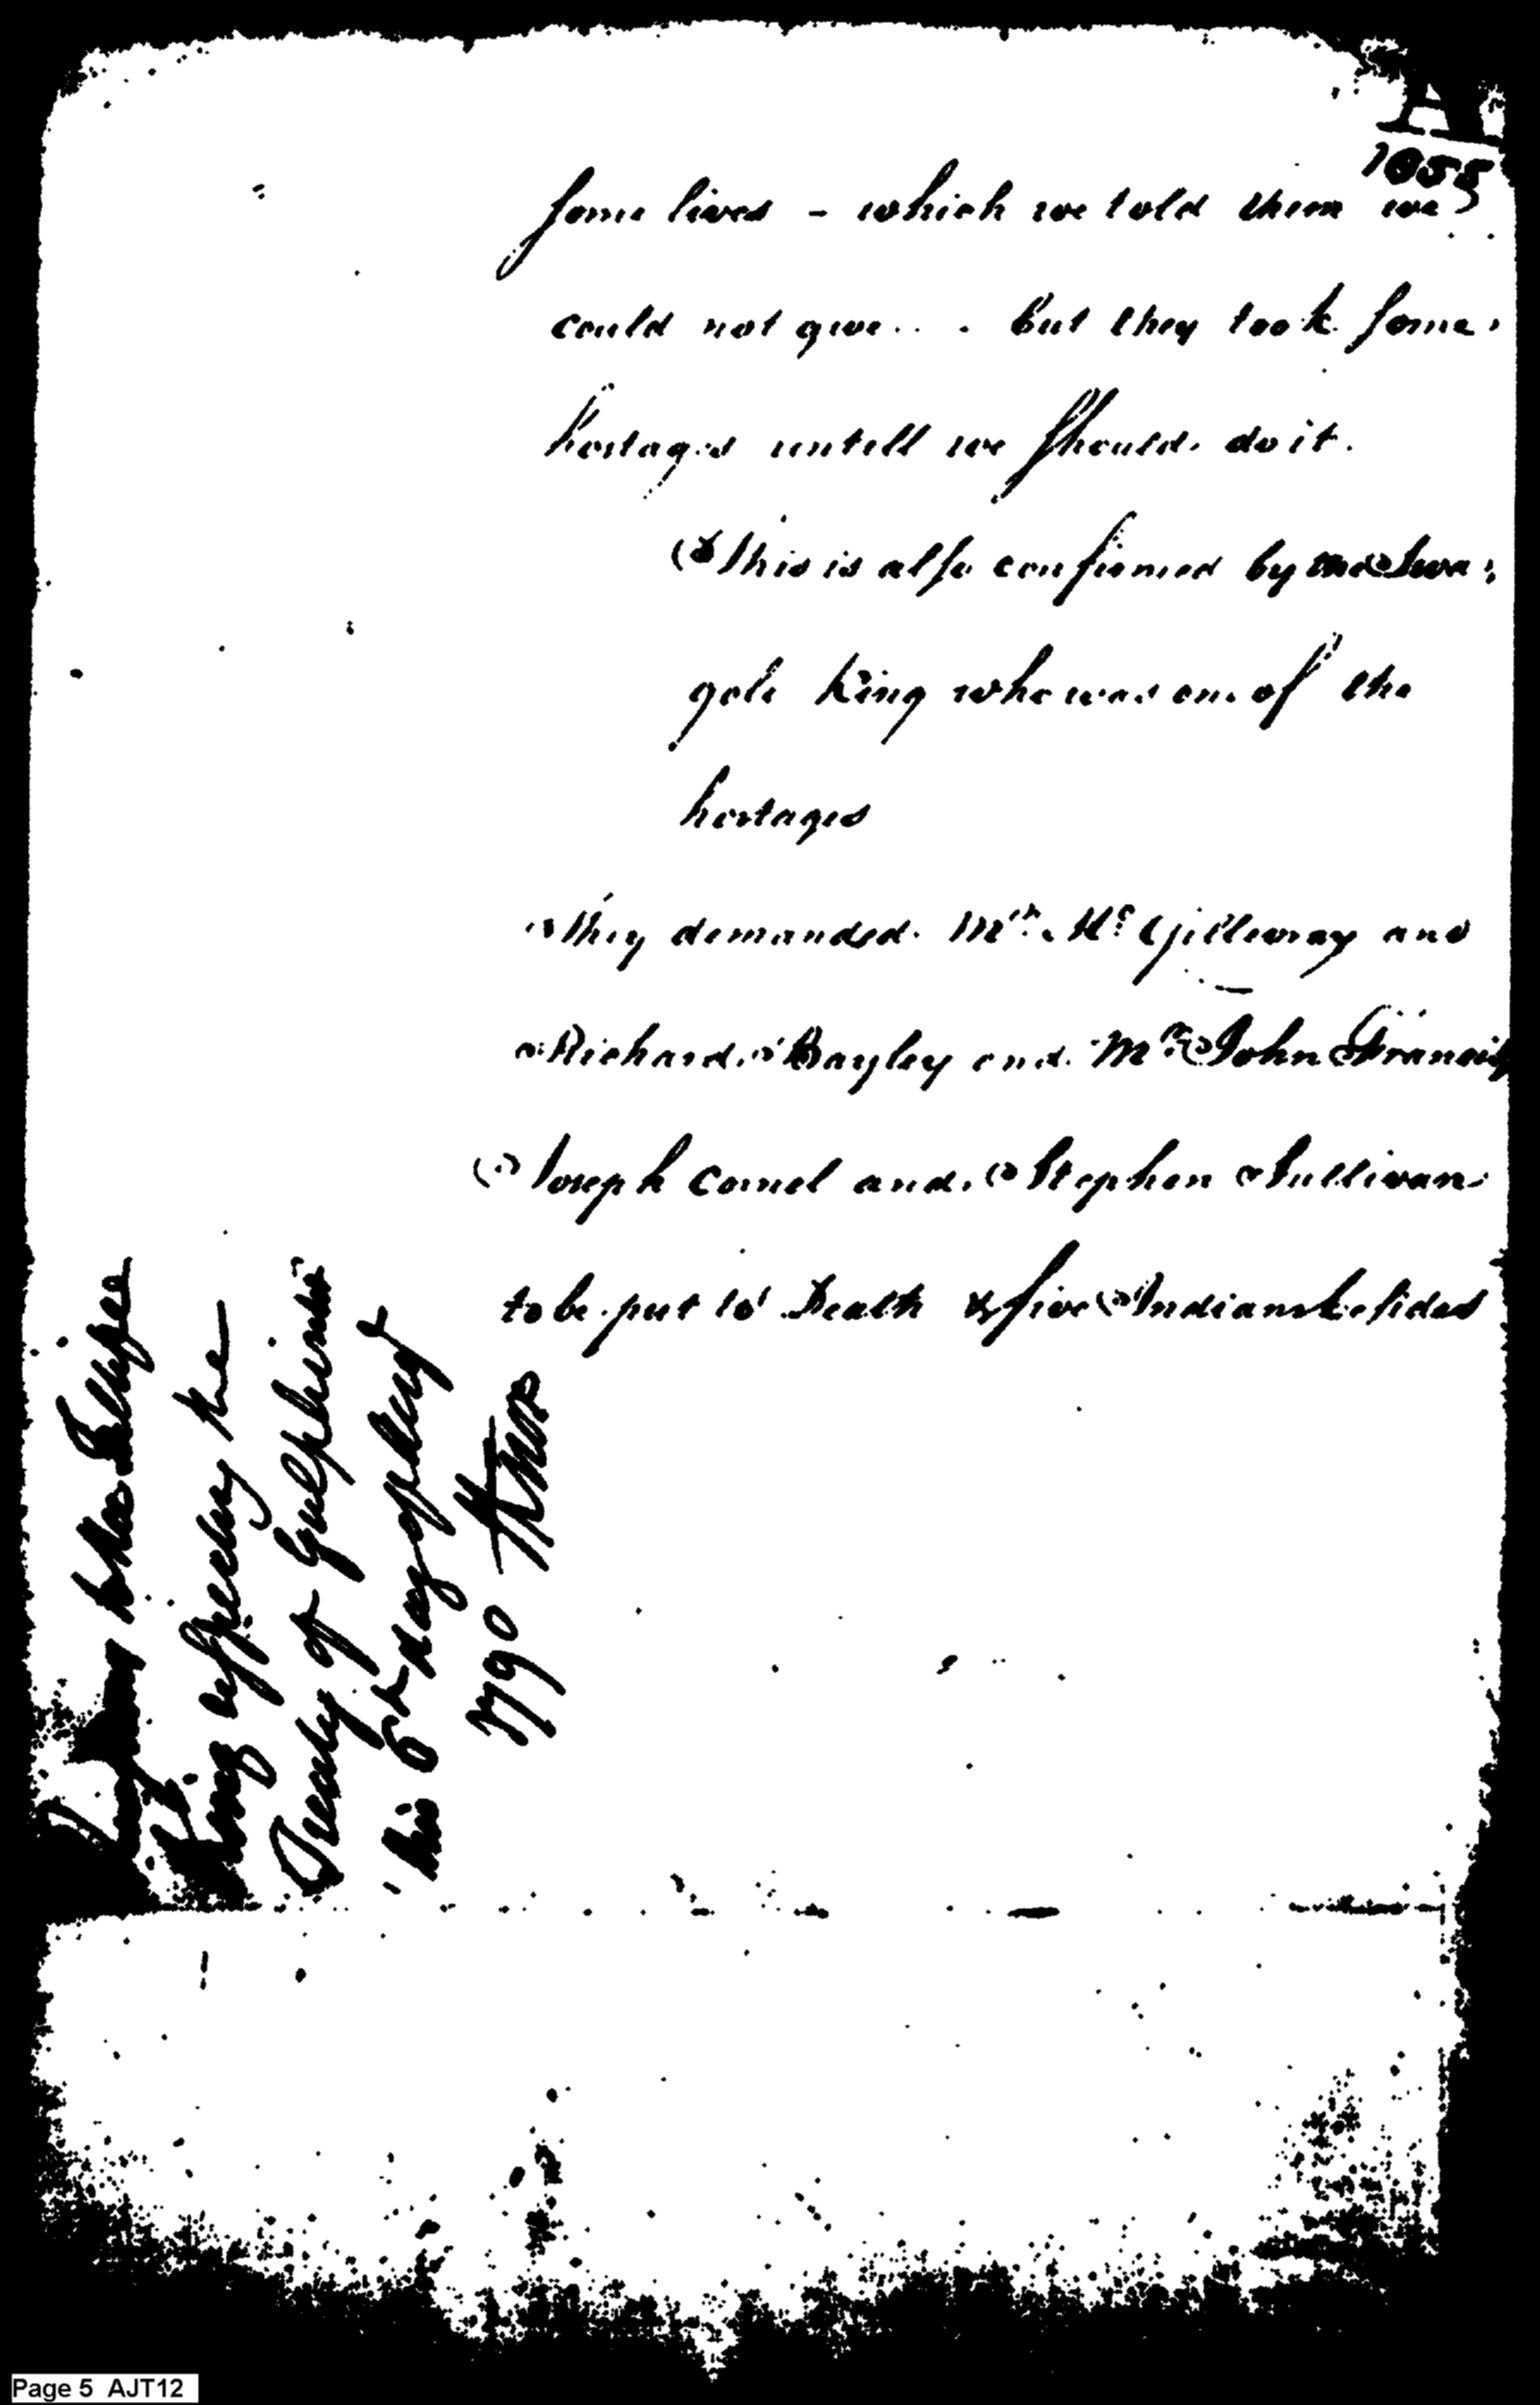 A
1055
some lives - which we told them we
could not give... but they took some
hostages untill we should do it.
This is also confirmed by the Swa:
gole King who was one of the
hostages
They demanded Mr. McGillevray and
Richard Bayley and Mr. John Francis
Joseph Cornel and Stephen Sullivan
to be put to Death & five Indians besides
King respecting the
Treaty of Gulphinton
this 6th day of
1790 
Page 5 AJT12